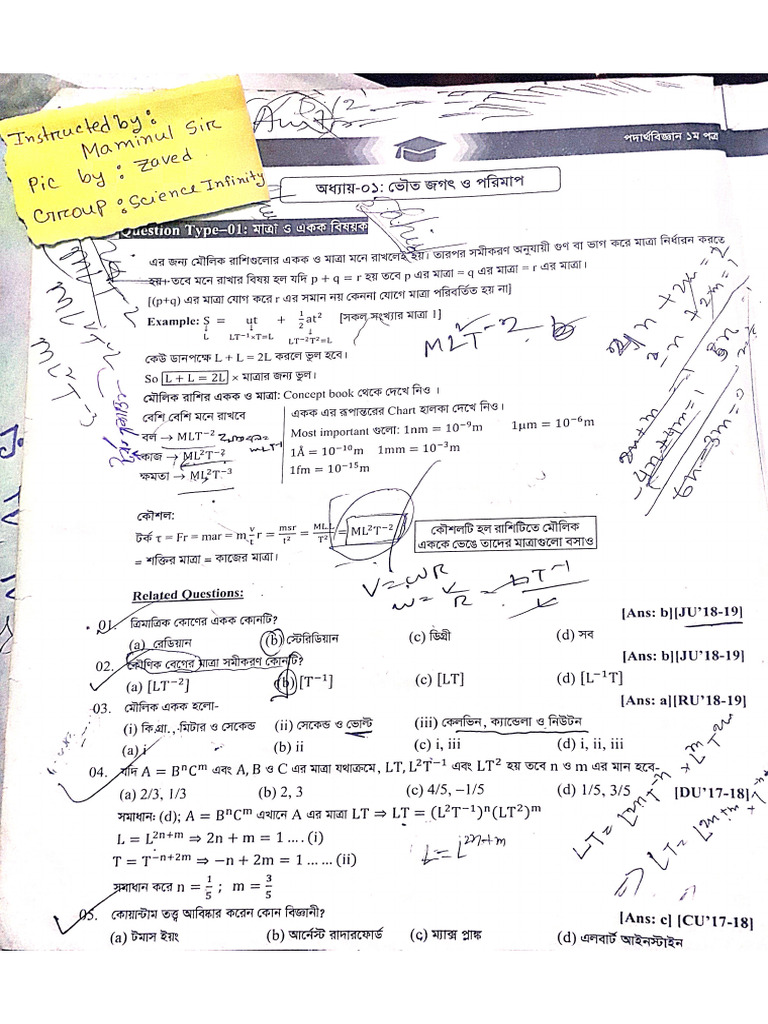 Instructed by:
Maminul Sir
Pic by : Zaved
Group : Science Infinity
পদার্থবিজ্ঞান ১ম পত্র
অধ্যায়-০১: ভৌত জগৎ ও পরিমাপ
Question Type–01: মাত্রা ও একক বিষয়ক
এর জন্য মৌলিক রাশিগুলোর একক ও মাত্রা মনে রাখলেই হয়। তারপর সমীকরণ অনুযায়ী গুণ বা ভাগ করে মাত্রা নির্ধারন করতে
হয়+ তবে মনে রাখার বিষয় হল যদি p + q = r হয় তবে p এর মাত্রা = q এর মাত্রা = r এর মাত্রা।
[(p+q) এর মাত্রা যোগ করে r এর সমান নয় কেননা যোগে মাত্রা পরিবর্তিত হয় না]
Example: S = ut + ½at² [সকল সংখ্যার মাত্রা 1]
L LT⁻¹×T=L LT⁻²T²=L
ML²T⁻²
কেউ ডানপক্ষে L + L = 2L করলে ভুল হবে।
So L + L = 2L × মাত্রার জন্য ভুল।
মৌলিক রাশির একক ও মাত্রা: Concept book থেকে দেখে নিও ।
বেশি বেশি মনে রাখবে
বল → MLT⁻²
কাজ → ML²T⁻²
ক্ষমতা → ML²T⁻³
একক এর রূপান্তরের Chart হালকা দেখে নিও।
Most important গুলো: 1nm = 10⁻⁹m 1μm = 10⁻⁶m
1Å = 10⁻¹⁰m 1mm = 10⁻³m
1fm = 10⁻¹⁵m
ML²T⁻²
ML²T⁻³
কৌশল:
টর্ক τ = Fr = mar = m v/t r = msr/t² = ML.L/T² = ML²T⁻²
= শক্তির মাত্রা = কাজের মাত্রা।
কৌশলটি হল রাশিটিতে মৌলিক
এককে ভেঙে তাদের মাত্রাগুলো বসাও
V = ωR
ω = V/R
Related Questions:
01. ত্রিমাত্রিক কোণের একক কোনটি? [Ans: b][JU'18-19]
(a) রেডিয়ান (b) স্টেরিডিয়ান (c) ডিগ্রী (d) সব
02. কৌণিক বেগের মাত্রা সমীকরণ কোনটি? [Ans: b][JU'18-19]
(a) [LT⁻²] (b) [T⁻¹] (c) [LT] (d) [L⁻¹T]
03. মৌলিক একক হলো- [Ans: a][RU'18-19]
(i) কি.গ্রা., মিটার ও সেকেন্ড (ii) সেকেন্ড ও ভোল্ট (iii) কেলভিন, ক্যান্ডেলা ও নিউটন
(a) i (b) ii (c) i, iii (d) i, ii, iii
04. যদি A = BⁿCᵐ এবং A, B ও C এর মাত্রা যথাক্রমে, LT, L²T⁻¹ এবং LT² হয় তবে n ও m এর মান হবে-
(a) 2/3, 1/3 (b) 2, 3 (c) 4/5, –1/5 (d) 1/5, 3/5 [DU'17-18]
সমাধান: (d); A = BⁿCᵐ এখানে A এর মাত্রা LT ⇒ LT = (L²T⁻¹)ⁿ(LT²)ᵐ
L = L²ⁿ⁺ᵐ ⇒ 2n + m = 1 .... (i)
T = T⁻ⁿ⁺²ᵐ ⇒ −n + 2m = 1 ...... (ii)
L = L²ⁿ⁺ᵐ
সমাধান করে n = 1/5 ; m = 3/5
05. কোয়ান্টাম তত্ত্ব আবিষ্কার করেন কোন বিজ্ঞানী? [Ans: c] [CU'17-18]
(a) টমাস ইয়ং (b) আর্নেস্ট রাদারফোর্ড (c) ম্যাক্স প্লাঙ্ক (d) এলবার্ট আইনস্টাইন